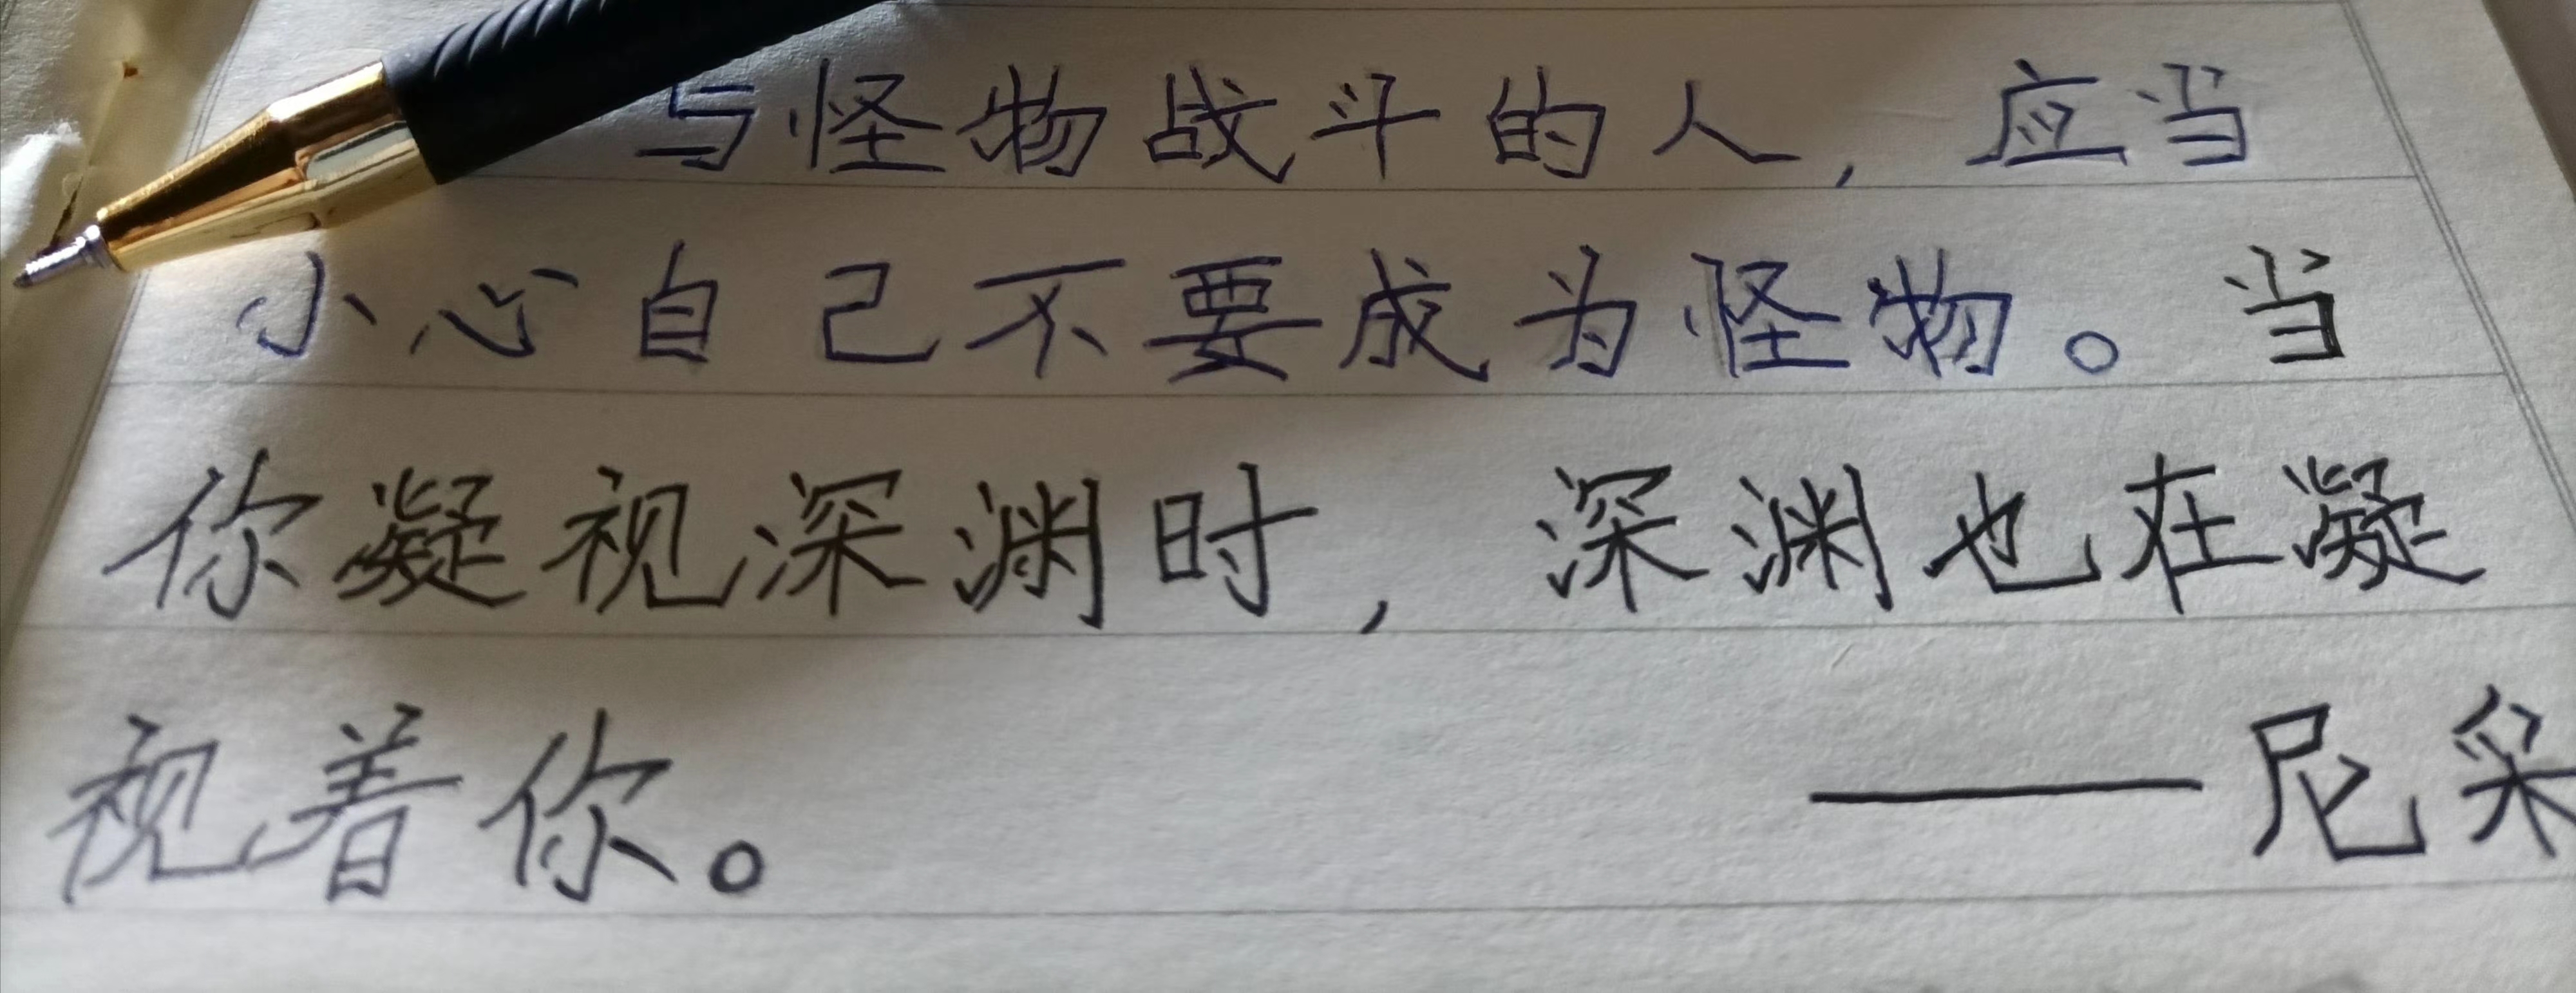 与怪物战斗的人，应当
小心自己不要成为怪物。当
你凝视深渊时，深渊也在凝
视着你。 ——尼采